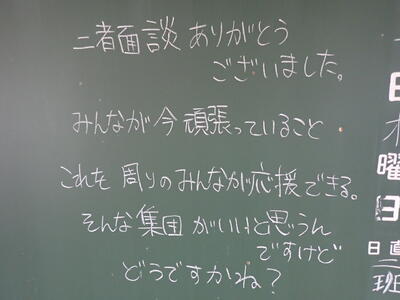 二者面談ありがとう
ございました。
みんなが今頑張っていること
これを周りのみんなが応援できる。
そんな集団がいいと思うん
ですけど
どうですかね?
日
木
曜
日
日直
班